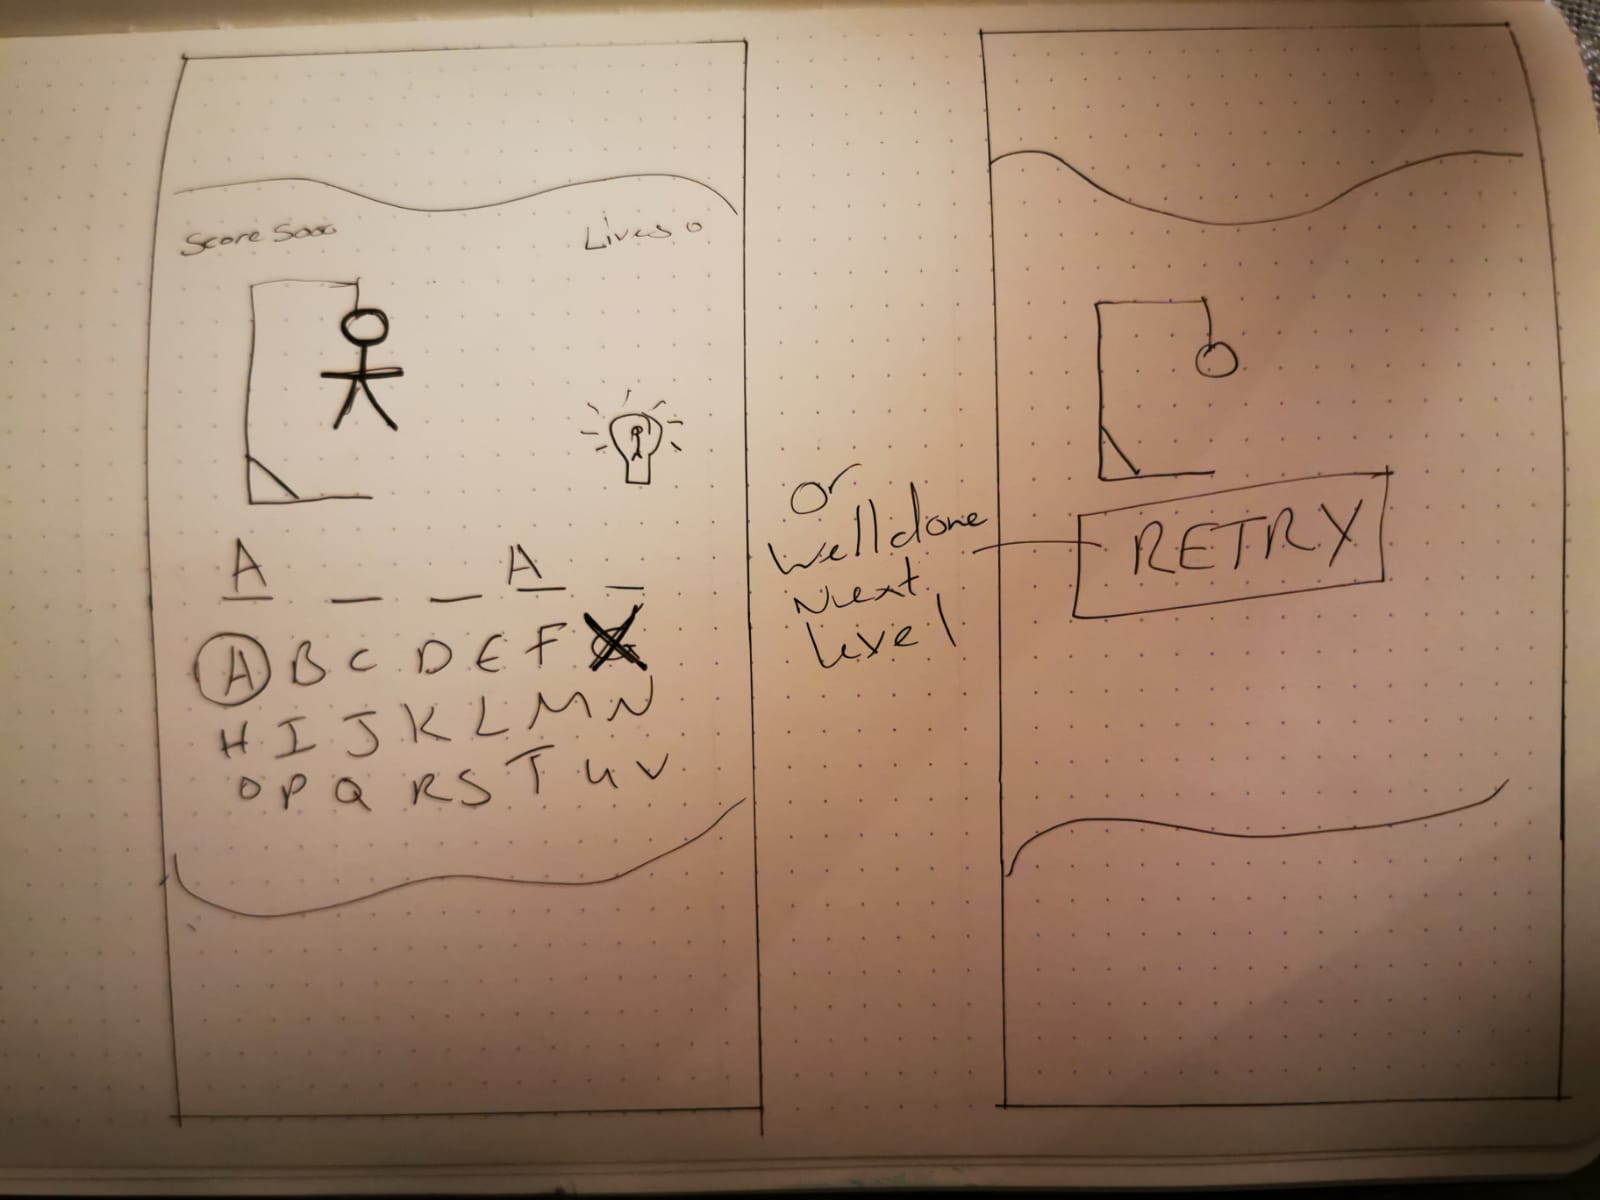 Score 5000
Lives 0
A _ _ A _
A B C D E F G
H I J K L M N
O P Q R S T U V
Or
Well done
Next
level
RETRY